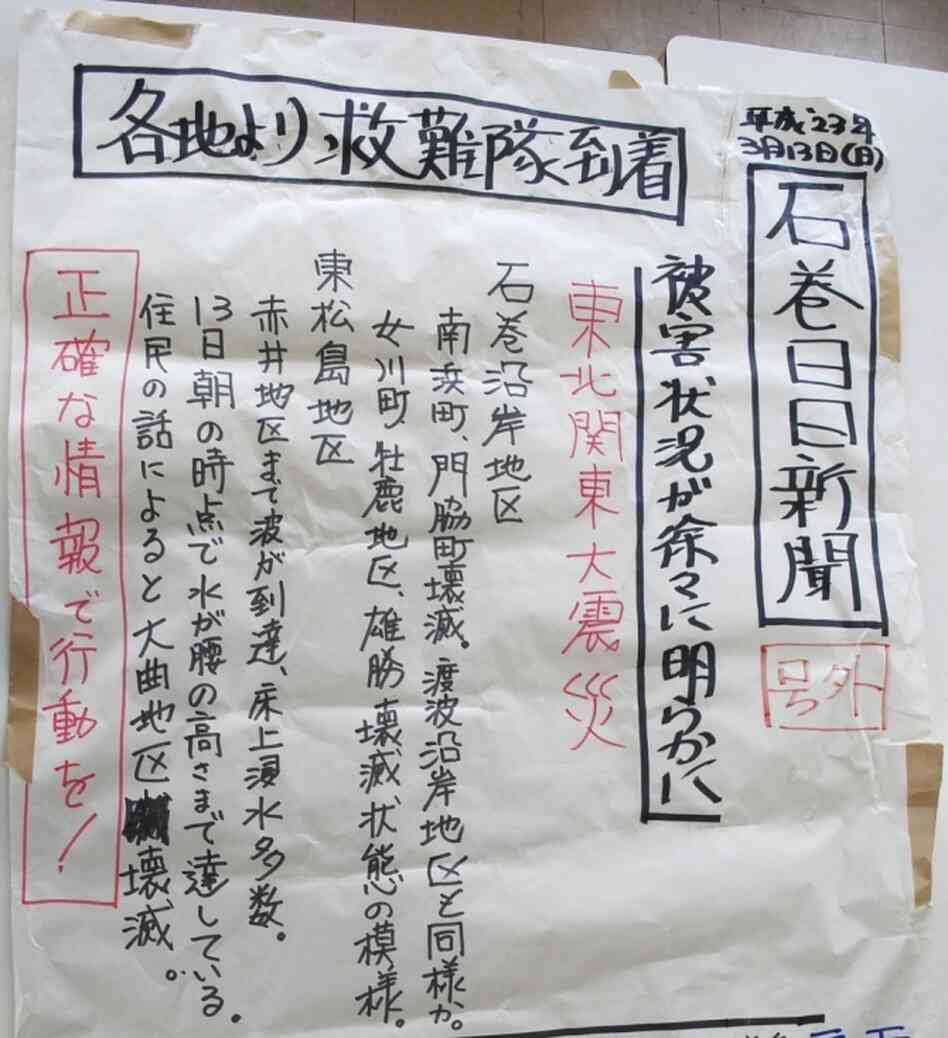 平成23年
3月13日(日)
石巻日日新聞
号外
各地より救難隊到着
被害状況が徐々に明らかに
東北関東大震災
石巻沿岸地区
南浜町、門脇町壊滅。渡波沿岸地区も同様か。
女川町、牡鹿地区、雄勝壊滅状態の模様。
東松島地区
赤井地区まで波が到達、床上浸水多数。
13日朝の時点で水が腰の高さまで達している。
住民の話によると大曲地区壊滅。
正確な情報で行動を!